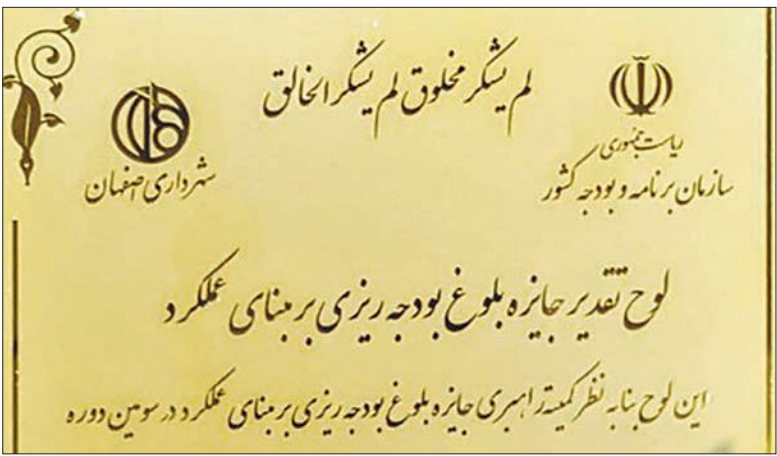 لم یشکر مخلوق لم یشکر الخالق
ریاست جمهوری
سازمان برنامه و بودجه کشور
شهرداری اصفهان
لوح تقدیر جایزه بلوغ بودجه ریزی بر مبنای عملکرد
این لوح بنا به نظر کمیته راهبری جایزه بلوغ بودجه ریزی بر مبنای عملکرد در سومین دوره